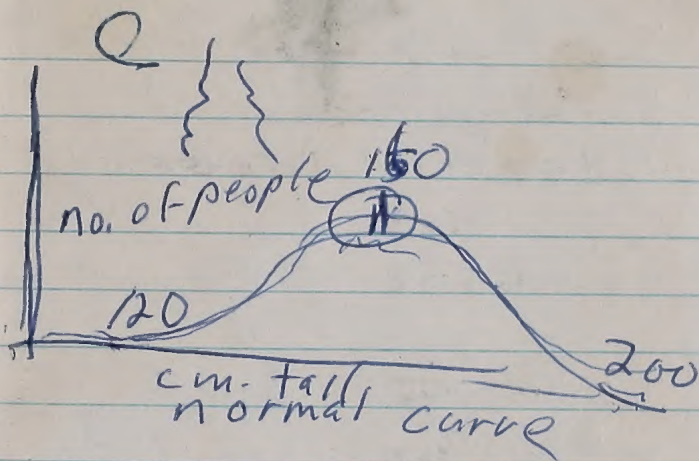 no. of people
120
200
cm. tall
normal curve